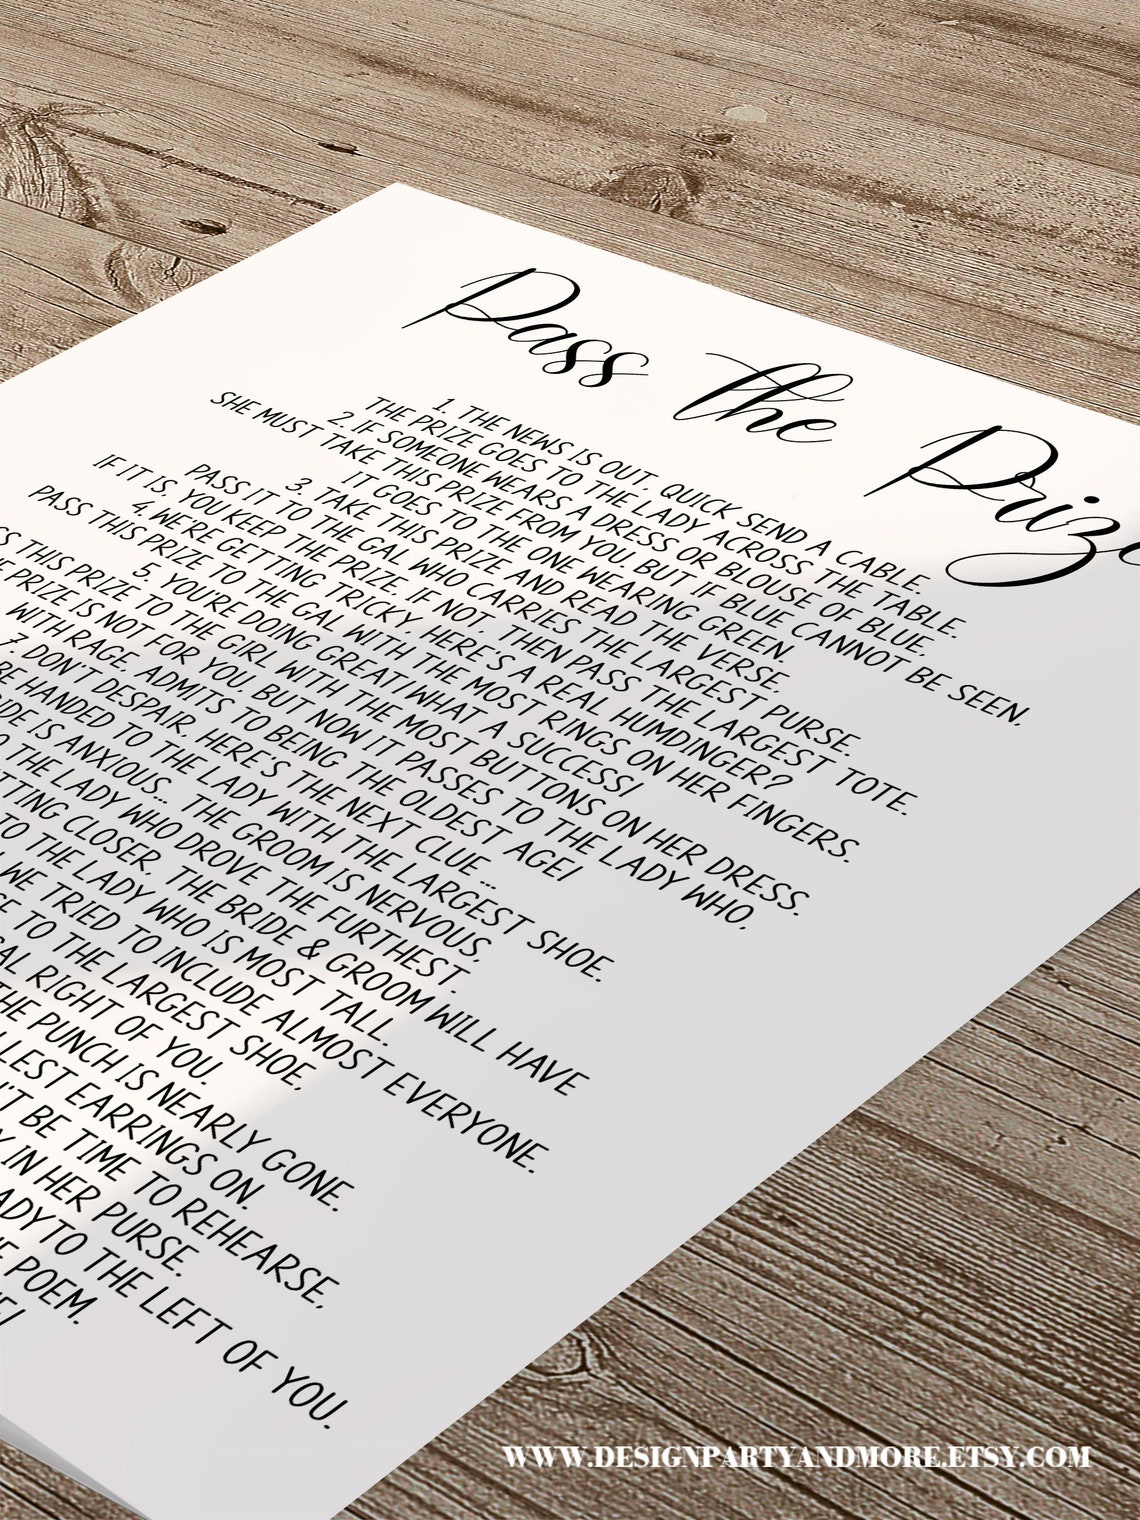 Pass the Prize
1. THE NEWS IS OUT. QUICK SEND A CABLE.
THE PRIZE GOES TO THE LADY ACROSS THE TABLE.
2. IF SOMEONE WEARS A DRESS OR BLOUSE OF BLUE,
SHE MUST TAKE THIS PRIZE FROM YOU. BUT IF BLUE CANNOT BE SEEN,
IT GOES TO THE ONE WEARING GREEN.
3. TAKE THIS PRIZE AND READ THE VERSE.
PASS IT TO THE GAL WHO CARRIES THE LARGEST PURSE.
IF IT IS, YOU KEEP THE PRIZE. IF NOT, THEN PASS THE LARGEST TOTE.
4. WE'RE GETTING TRICKY, HERE'S A REAL HUMDINGER?
PASS THIS PRIZE TO THE GAL WITH THE MOST RINGS ON HER FINGERS.
5. YOU'RE DOING GREAT! WHAT A SUCCESS!
SS THIS PRIZE TO THE GIRL WITH THE MOST BUTTONS ON HER DRESS.
PRIZE IS NOT FOR YOU, BUT NOW IT PASSES TO THE LADY WHO,
WITH RAGE, ADMITS TO BEING THE OLDEST AGE!
7. DON'T DESPAIR, HERE'S THE NEXT CLUE...
BE HANDED TO THE LADY WITH THE LARGEST SHOE.
IDE IS ANXIOUS... THE GROOM IS NERVOUS,
O THE LADY WHO DROVE THE FURTHEST.
TTING CLOSER, THE BRIDE & GROOM WILL HAVE
TO THE LADY WHO IS MOST TALL.
WE TRIED TO INCLUDE ALMOST EVERYONE.
SE TO THE LARGEST SHOE,
AL RIGHT OF YOU.
THE PUNCH IS NEARLY GONE.
LLEST EARRINGS ON.
'T BE TIME TO REHEARSE,
Y IN HER PURSE.
ADY TO THE LEFT OF YOU.
E POEM.
E!
WWW.DESIGNPARTYANDMORE.ETSY.COM